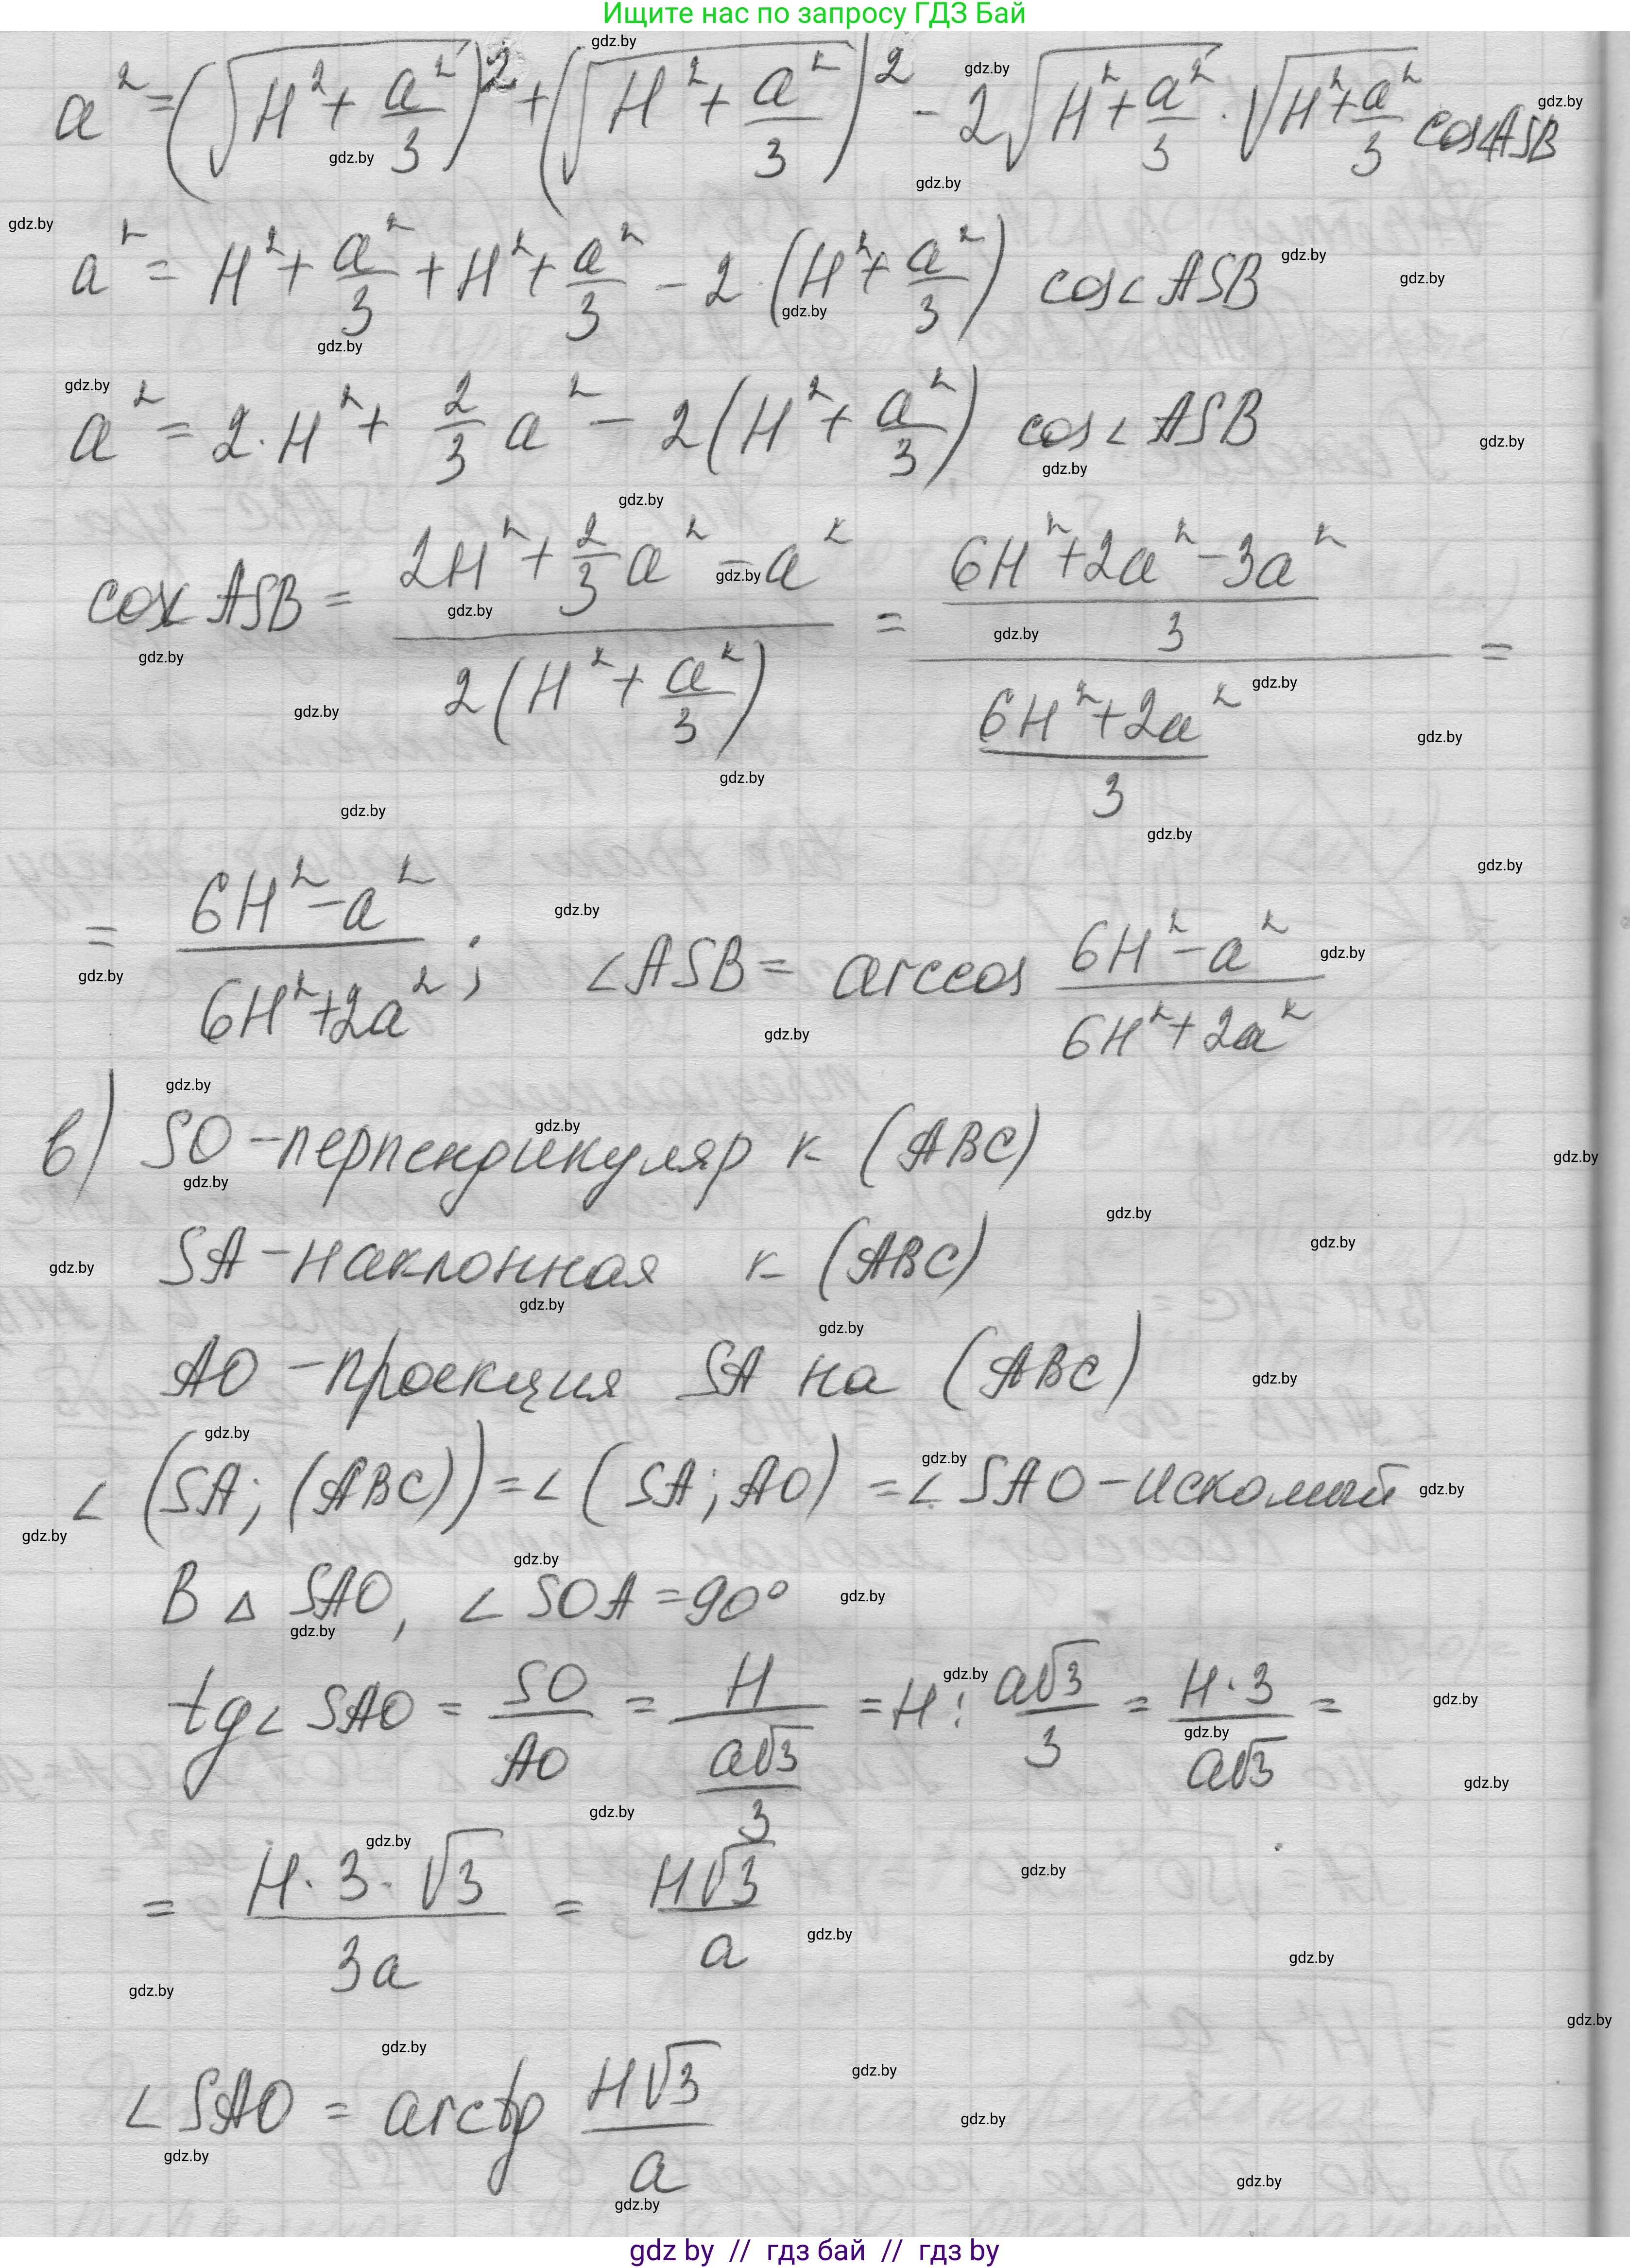 Ищите нас по запросу ГДЗ Бай
a² = (√(H² + a²/3))² + (√(H² + a²/3))² - 2√(H² + a²/3) · √(H² + a²/3) cos∠ASB
a² = H² + a²/3 + H² + a²/3 - 2·(H² + a²/3) cos∠ASB
a² = 2·H² + 2/3 a² - 2(H² + a²/3) cos∠ASB
cos∠ASB = (2H² + 2/3 a² - a²)/(2(H² + a²/3)) = ((6H² + 2a² - 3a²)/3)/((6H² + 2a²)/3) =
= (6H² - a²)/(6H² + 2a²); ∠ASB = arccos (6H² - a²)/(6H² + 2a²)
в) SO - перпендикуляр к (ABC)
SA - наклонная к (ABC)
AO - проекция SA на (ABC)
∠(SA; (ABC)) = ∠(SA; AO) = ∠SAO - искомый
В △ SAO, ∠SOA = 90°
tg∠SAO = SO/AO = H/(a√3/3) = H : a√3/3 = H·3/a√3 =
= H·3·√3/3a = H√3/a
∠SAO = arctg H√3/a
gdz by // гдз бай // гдз by